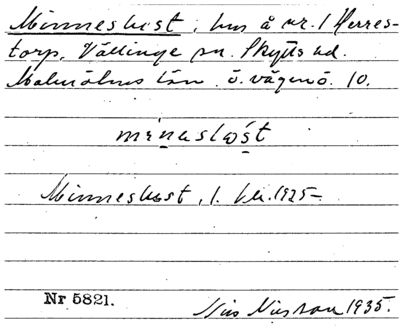 Minneslust, hus å nr. 1 Herres-
torp, Vällinge sn. Skytts hd.
Malmöhus län. ö. vägen ö. 10.
Minneslust, 1.
1925
Nr 5821.
Nils Nilsson 1935.